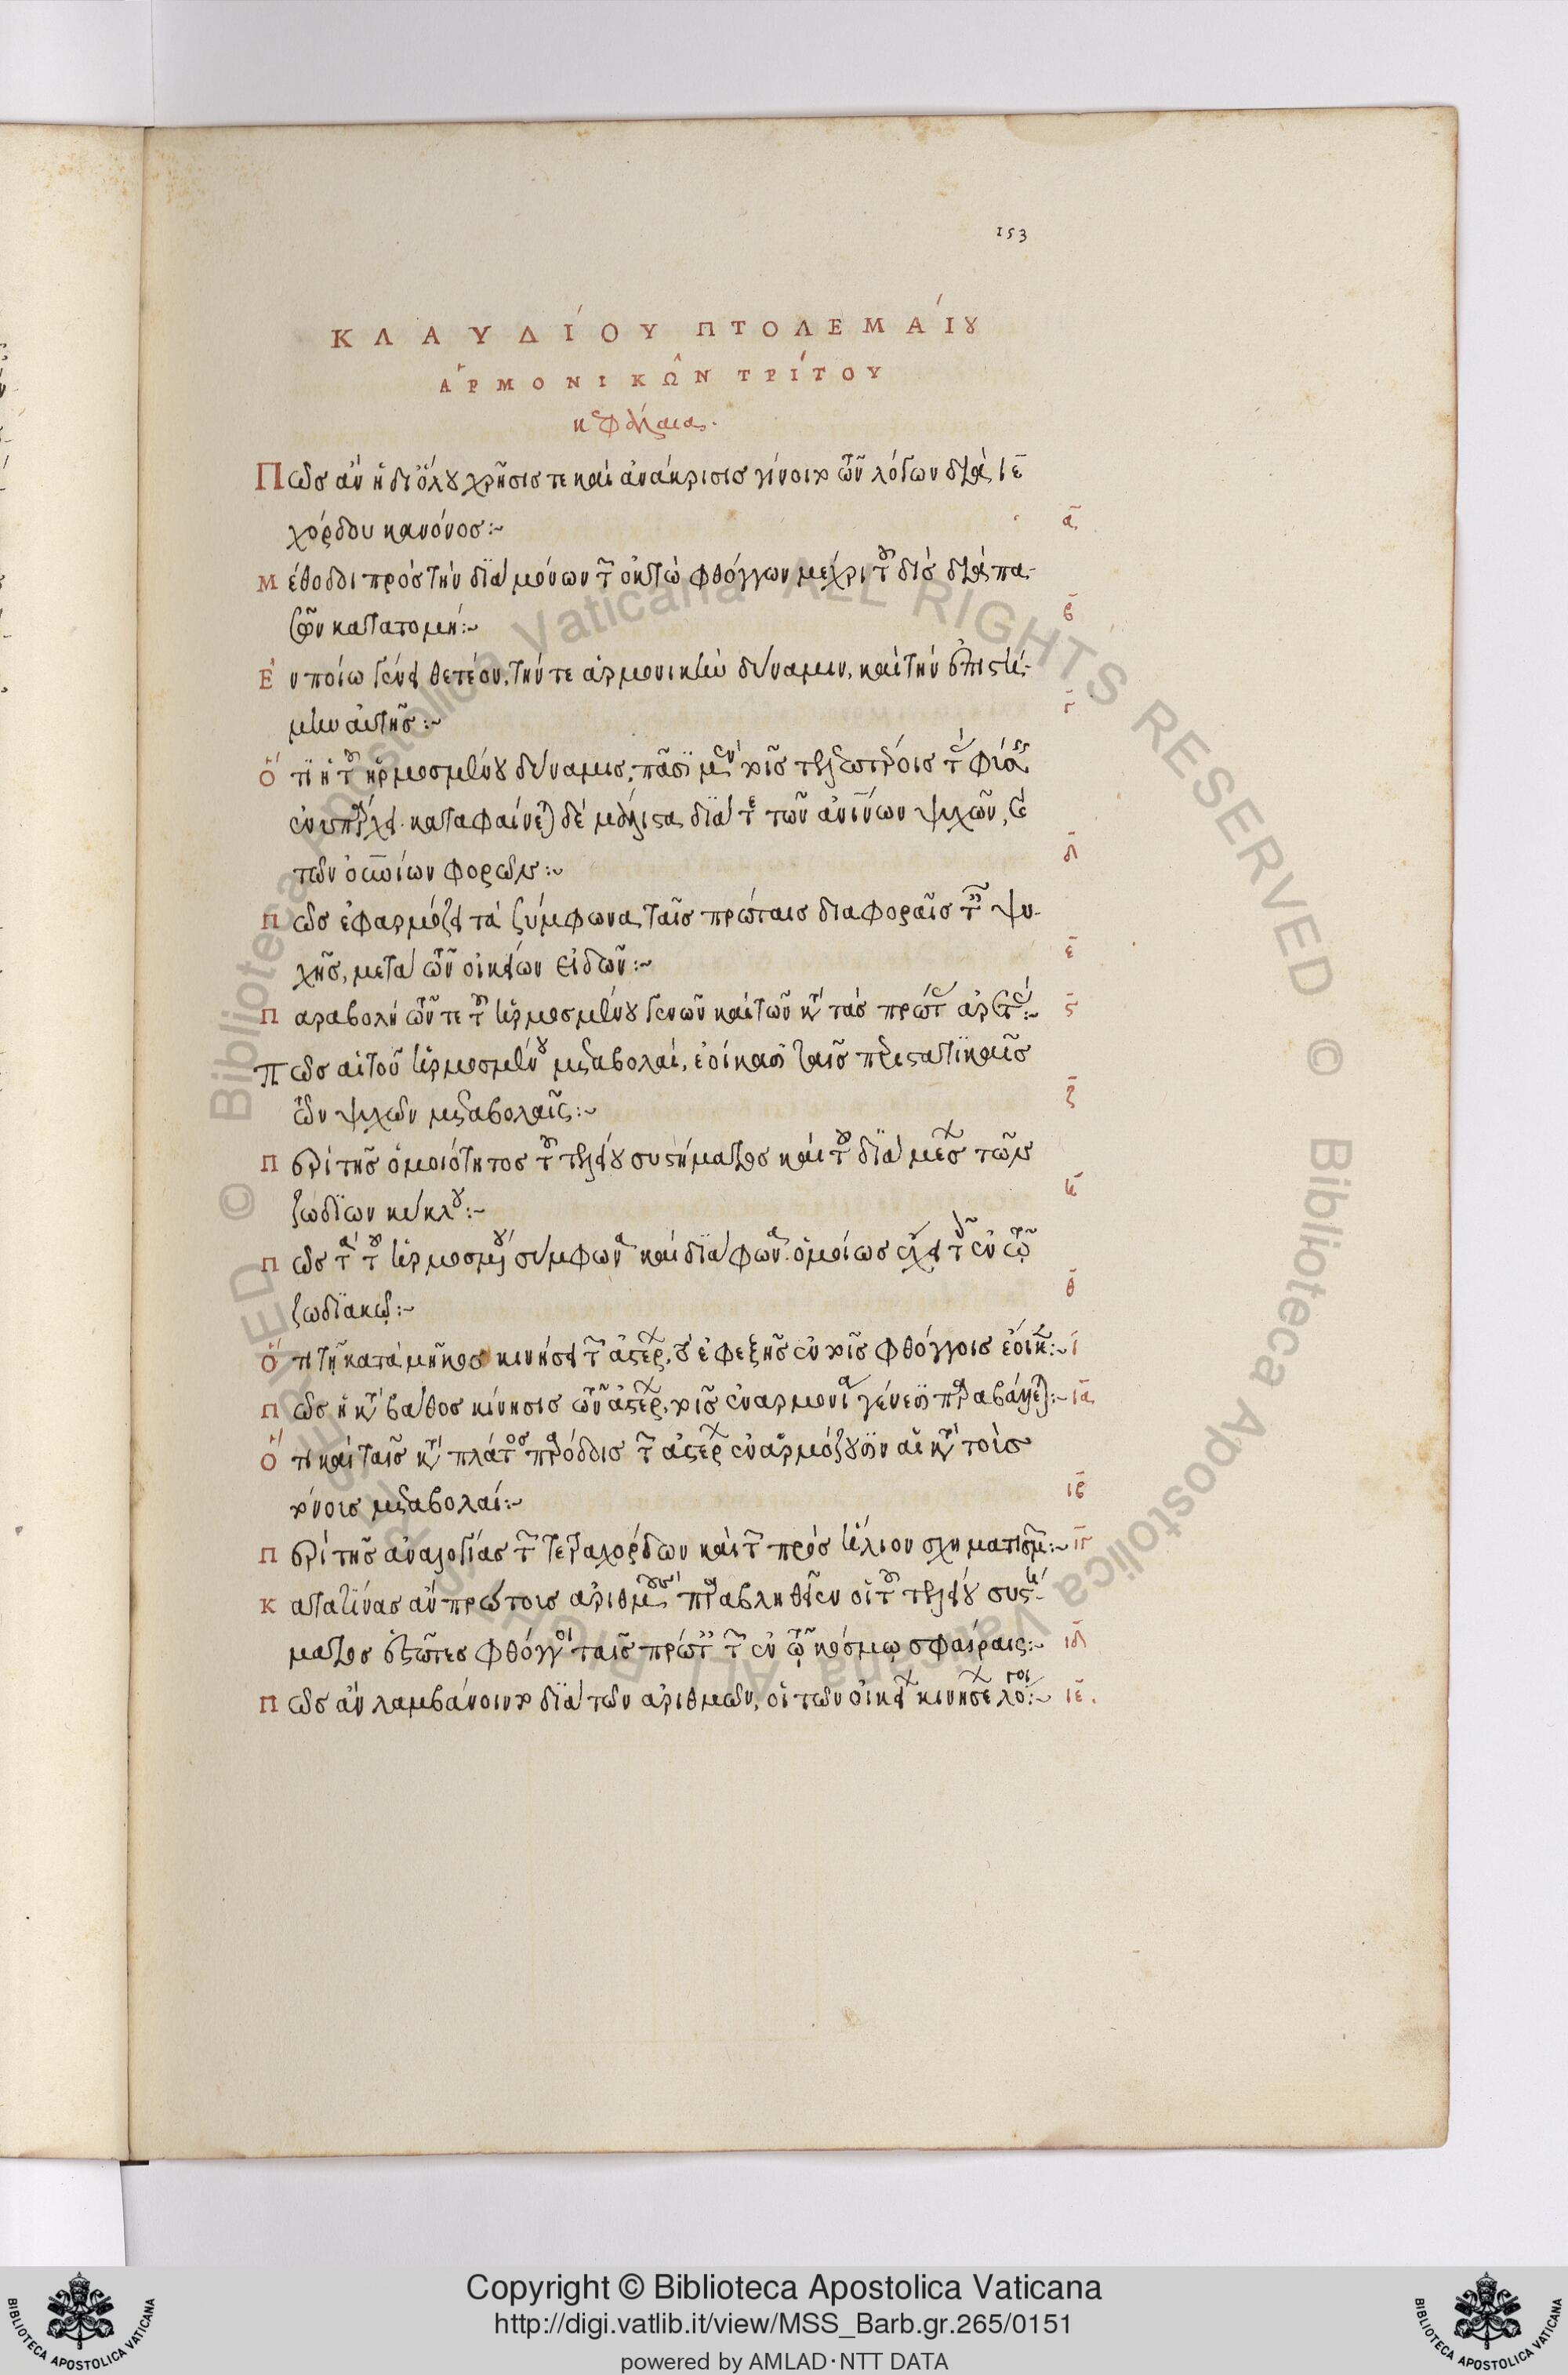 153
ΚΛΑΥΔΊΟΥ ΠΤΟΛΕΜΑΊΟΥ
ἉΡΜΟΝΙΚΩ͂Ν ΤΡΊΤΟΥ
κεφάλαια.
Πῶς ἂν ἡ δι ὅλου χρῆσις τε καὶ ἀνάκρισις γίνοιτο τῶν λόγων διὰ ιε
χόρδου κανόνος:~ α
Μέθοδοι πρὸς τὴν διὰ μόνων τῶν ὀκτὼ φθόγγων μέχρι τοῦ δὶς διὰ πα-
σῶν κατατομή:~ β
Ἐν ποίω γένει θετέον, τήν τε ἁρμονικὴν δύναμιν, καὶ τὴν ἐπιστή-
μην αὐτῆς:~ γ
Ὅτι ἡ τοῦ ἡρμοσμένου δύναμις, πᾶσι μὲν τοῖς τελειοτέροις τὰς φύσεις
ἐνυπάρχει. καταφαίνεται δὲ μάλιστα, διὰ τε τῶν ἀνθρωπίνων ψυχῶν, καὶ
τῶν οὐρανίων φορῶν:~ δ
Πῶς ἐφαρμόζει τὰ σύμφωνα ταῖς πρώταις διαφοραῖς τῆς ψυ-
χῆς, μετὰ τῶν οἰκείων εἰδῶν:~ ε
Παραβολὴ τῶν τε τοῦ ἡρμοσμένου γενῶν καὶ τῶν κατὰ τὰς πρώτας ἀρετάς:~ ς
Πῶς αἱ τοῦ ἡρμοσμένου μεταβολαὶ, ἐοίκασι ταῖς περιστατικαῖς
τῶν ψυχῶν μεταβολαῖς:~ ζ
Περὶ τῆς ὁμοιότητος τοῦ τελείου συστήματος καὶ τοῦ διὰ μέσων τῶν
ζωδίων κύκλου:~ η
Πῶς τὰ τοῦ ἡρμοσμένου σύμφωνα καὶ διάφωνα ὁμοίως ἔχει τοῖς ἐν τῷ
ζωδιακῷ:~ θ
Ὅτι τῇ κατὰ μῆκος κινήσει τῶν ἀστέρων, τὸ ἐφεξῆς ἐν τοῖς φθόγγοις ἔοικεν:~ ι
Πῶς ἡ κατὰ βάθος κίνησις τῶν ἀστέρων, τοῖς ἐν ἁρμονίᾳ γένεσι παραβάλλεται:~ ια
Ὅτι καὶ ταῖς κατὰ πλάτος παρόδοις τῶν ἀστέρων ἐναρμόζουσιν αἱ κατὰ τοὺς
τόνους μεταβολαί:~ ιβ
Περὶ τῆς ἀναλογίας τῶν τετραχόρδων καὶ τῶν πρὸς ἥλιον σχηματισμῶν:~ ιγ
Κατὰ τίνας ἂν πρώτους ἀριθμοὺς παραβληθεῖεν οἱ τοῦ τελείου συστή-
ματος ἑστῶτες φθόγγοι ταῖς πρώταις τῶν ἐν τῷ κόσμῳ σφαίραις:~ ιδ
Πῶς ἂν λαμβάνοιντο διὰ τῶν ἀριθμῶν, οἱ τῶν οἰκείων κινήσεων λόγοι:~ ιε.
Copyright © Biblioteca Apostolica Vaticana
http://digi.vatlib.it/view/MSS_Barb.gr.265/0151
powered by AMLAD·NTT DATA
BIBLIOTECA APOSTOLICA VATICANA
BIBLIOTECA APOSTOLICA VATICANA
© Biblioteca Apostolica Vaticana ALL RIGHTS RESERVED © Biblioteca Apostolica Vaticana ALL RIGHTS RESERVED